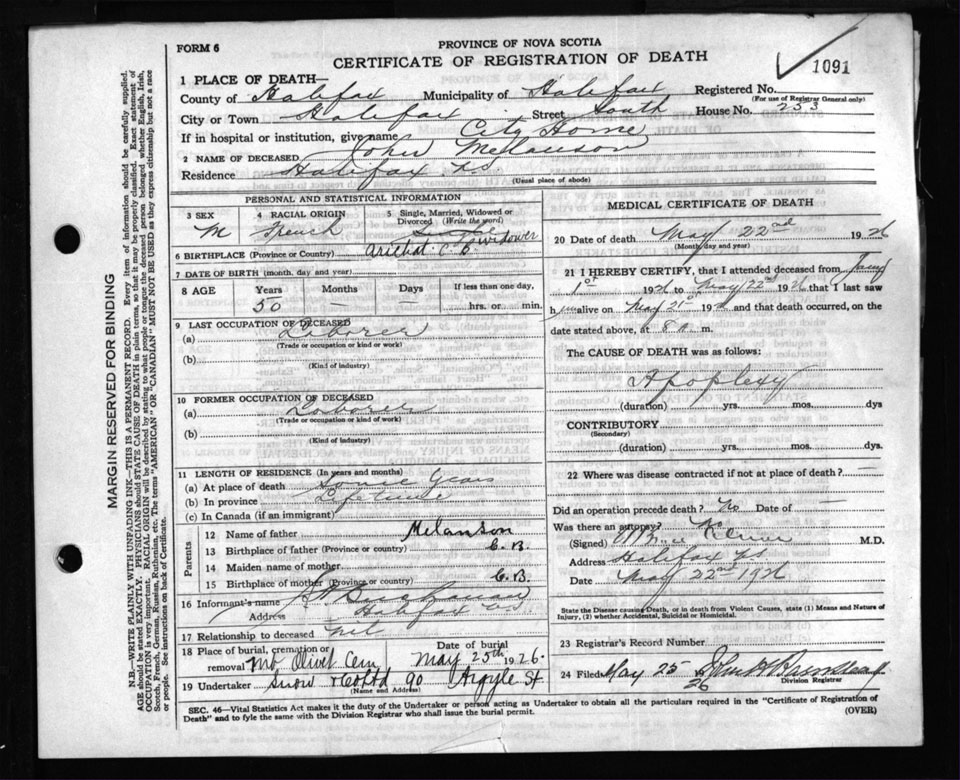 FORM 6
PROVINCE OF NOVA SCOTIA
CERTIFICATE OF REGISTRATION OF DEATH
1091
1 PLACE OF DEATH—
County of Halifax Municipality of Halifax Registered No.
(For use of Registrar General only)
City or Town Halifax Street South House No. 253
If in hospital or institution, give name City Home
2 NAME OF DECEASED John Melanson
Residence Halifax N.S.
(Usual place of abode)
PERSONAL AND STATISTICAL INFORMATION
3 SEX 4 RACIAL ORIGIN 5 Single, Married, Widowed or Divorced (Write the word)
M French Single Widower
6 BIRTHPLACE (Province or Country) Arichat C. B.
7 DATE OF BIRTH (month, day and year)
8 AGE Years Months Days If less than one day,
50 — — hrs. or min.
9 LAST OCCUPATION OF DECEASED
(a) Laborer
(Trade or occupation or kind of work)
(b)
(Kind of industry)
10 FORMER OCCUPATION OF DECEASED
(a) Laborer
(Trade or occupation or kind of work)
(b)
(Kind of industry)
11 LENGTH OF RESIDENCE (In years and months)
(a) At place of death Some Years
(b) In province Lifetime
(c) In Canada (if an immigrant)
Parents
12 Name of father Melanson
13 Birthplace of father (Province or country) C.B.
14 Maiden name of mother
15 Birthplace of mother (Province or country) C.B.
16 Informant's name Buchanan
Address Halifax N.S.
17 Relationship to deceased Nil
18 Place of burial, cremation or removal Mt Olivet Cem Date of burial May 25th 1926.
19 Undertaker Snow & Co Ltd 90 Argyle St
(Name and Address)
MEDICAL CERTIFICATE OF DEATH
20 Date of death May 22nd 1926
(Month, day and year)
21 I HEREBY CERTIFY, that I attended deceased from
1st 1926 to May 22nd 1926 that I last saw
him alive on May 21st 1926 and that death occurred, on the
date stated above, at 8 A. m.
The CAUSE OF DEATH was as follows:
Apoplexy
(duration) yrs. mos. dys
CONTRIBUTORY
(Secondary)
(duration) yrs. mos. dys
22 Where was disease contracted if not at place of death? —
Did an operation precede death? No Date of —
Was there an autopsy? No
(Signed) M.D.
Address Halifax NS
Date May 22nd 1926
State the Disease causing Death, or in death from Violent Causes, state (1) Means and Nature of
Injury, (2) whether Accidental, Suicidal or Homicidal.
23 Registrar's Record Number
24 Filed May 25 1926 John H Barnstead
Division Registrar
SEC. 46—Vital Statistics Act makes it the duty of the Undertaker or person acting as Undertaker to obtain all the particulars required in the "Certificate of Registration of
Death" and to fyle the same with the Division Registrar who shall issue the burial permit. (OVER)
MARGIN RESERVED FOR BINDING
N.B.—WRITE PLAINLY WITH UNFADING INK—THIS IS A PERMANENT RECORD. Every item of information should be carefully supplied.
AGE should be stated EXACTLY. PHYSICIANS should STATE CAUSE OF DEATH in plain terms, so that it may be properly classified. Exact statement of
OCCUPATION is very important. RACIAL ORIGIN will be described by stating to what people or tongue the deceased person belonged whether English, Irish,
Scotch, French, German, Russian, Ruthenian, etc. The terms "AMERICAN" OR "CANADIAN" MUST NOT BE USED as they express citizenship but not a race
or people. See instructions on back of Certificate.